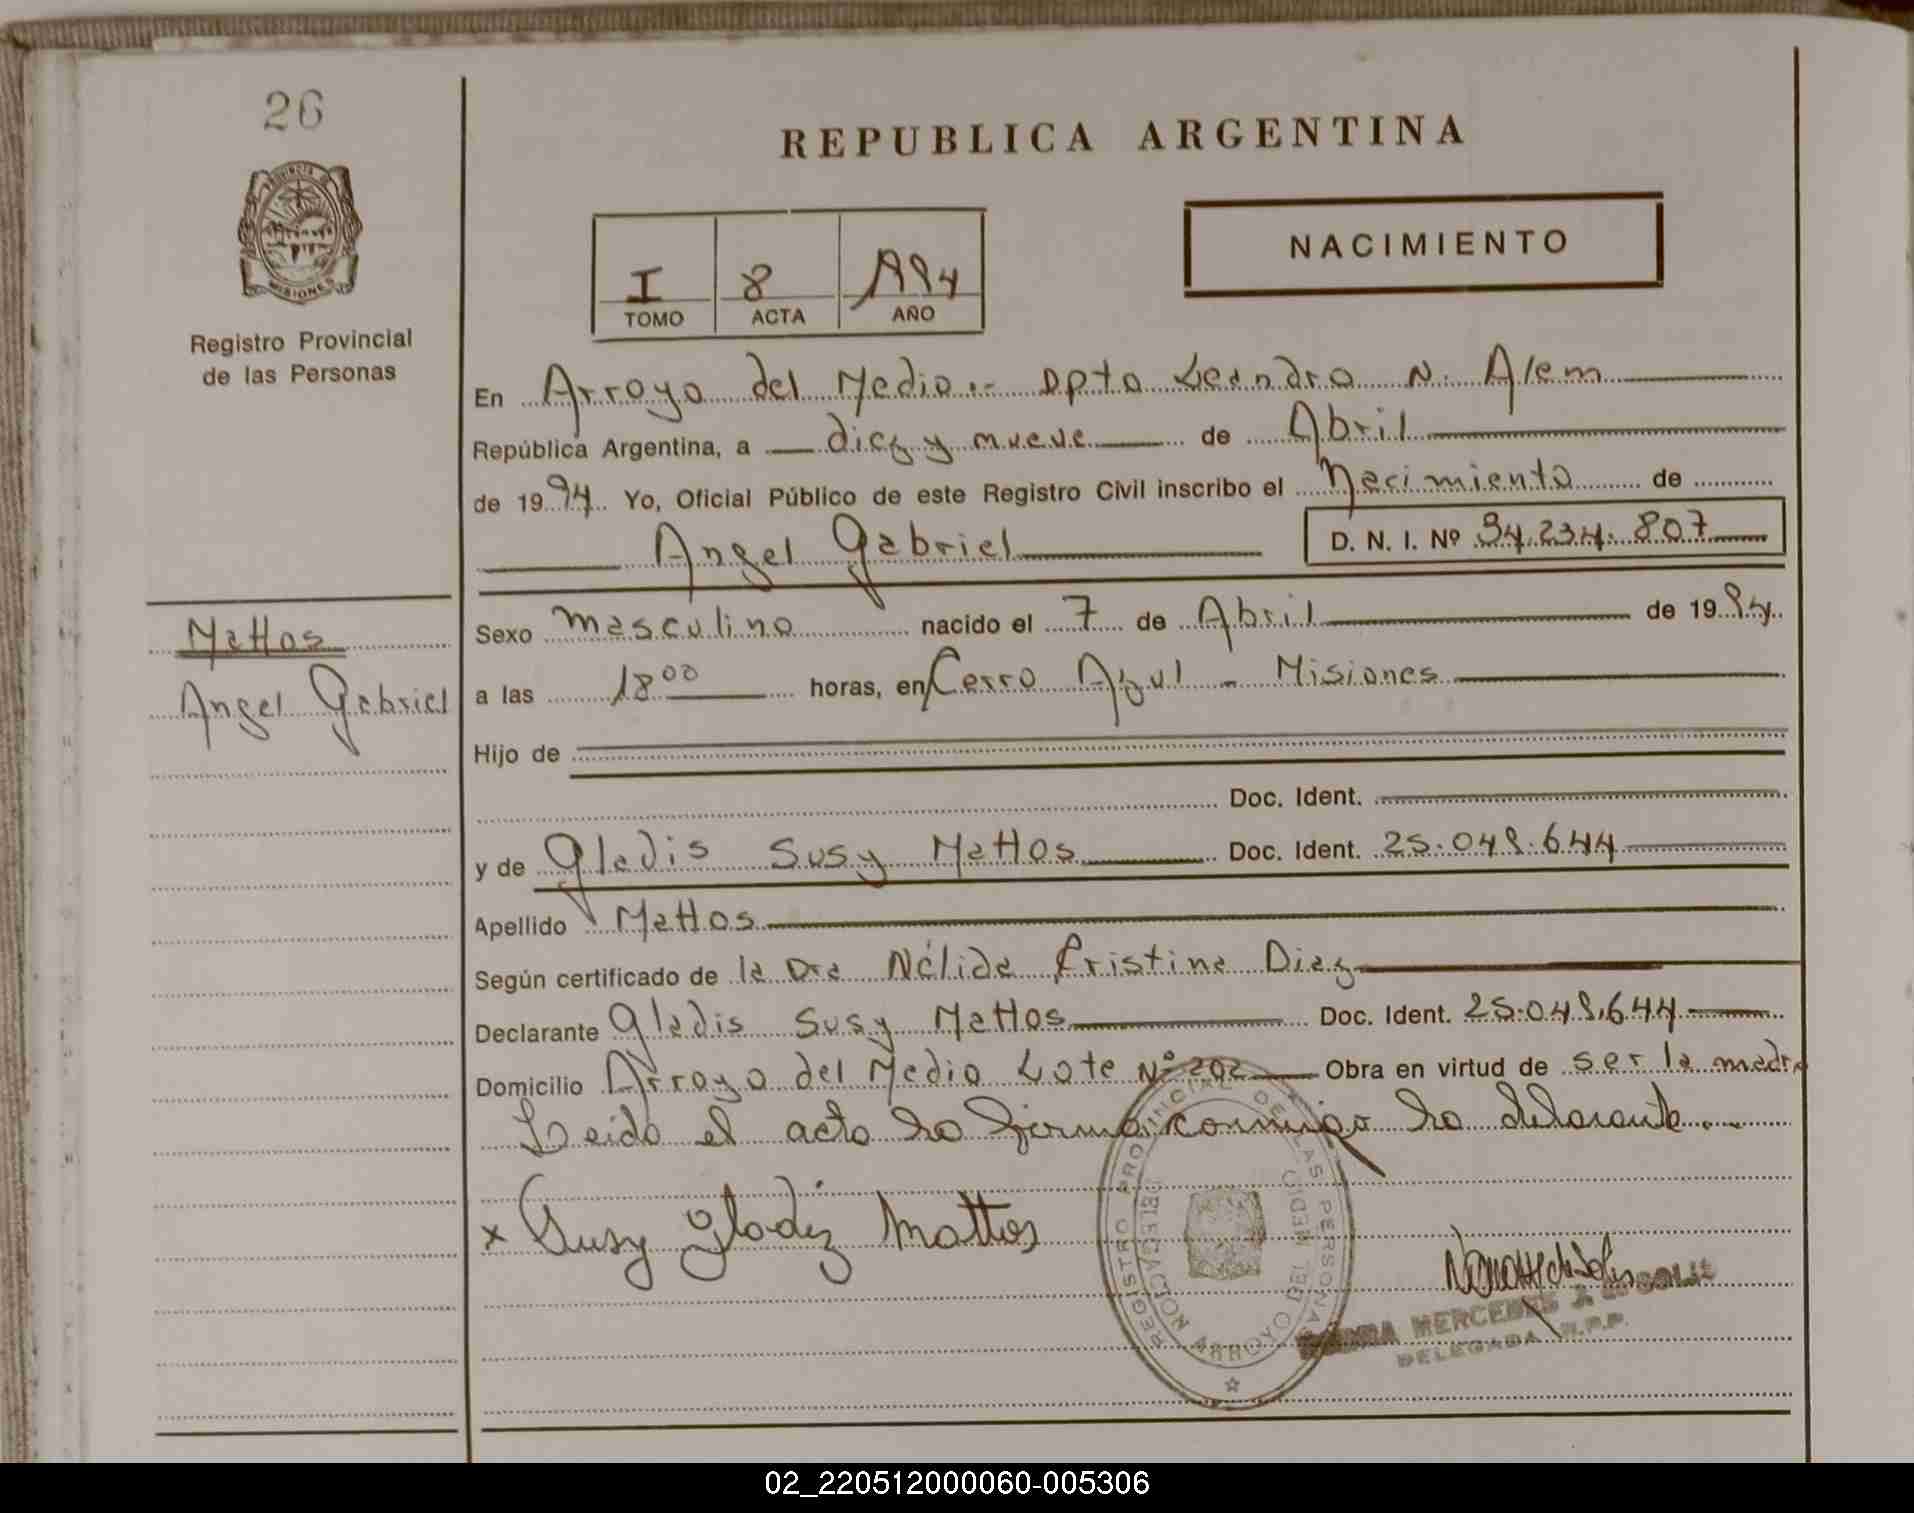 26
PROVINCIA DE
MISIONES
Registro Provincial
de las Personas
Mattos
Angel Gabriel
REPUBLICA ARGENTINA
NACIMIENTO
I 8 1994
TOMO ACTA AÑO
En Arroyo del Medio.- Dpto Leandro N. Alem
República Argentina, a diez y nueve de Abril
de 1994 Yo, Oficial Público de este Registro Civil inscribo el Nacimiento de
Angel Gabriel D. N. I. Nº 94.234.807
Sexo Masculino nacido el 7 de Abril de 1994
a las 18 00 horas, en Cerro Azul - Misiones
Hijo de
Doc. Ident.
y de Gladis Susy Mattos Doc. Ident. 25.049.644
Apellido Mattos
Según certificado de la Dra Nélida Cristina Diaz
Declarante Gladis Susy Mattos Doc. Ident. 25.049.644
Domicilio Arroyo del Medio Lote Nº 202 Obra en virtud de ser la madre
Leido el acto la firma conmigo la declarante.-
x Susy Gladiz Mattos
REGISTRO PROVINCIAL DE LAS PERSONAS
DELEGACION ARROYO DEL MEDIO
MERCEDES
DELEGADA R.P.P.
02_220512000060-005306